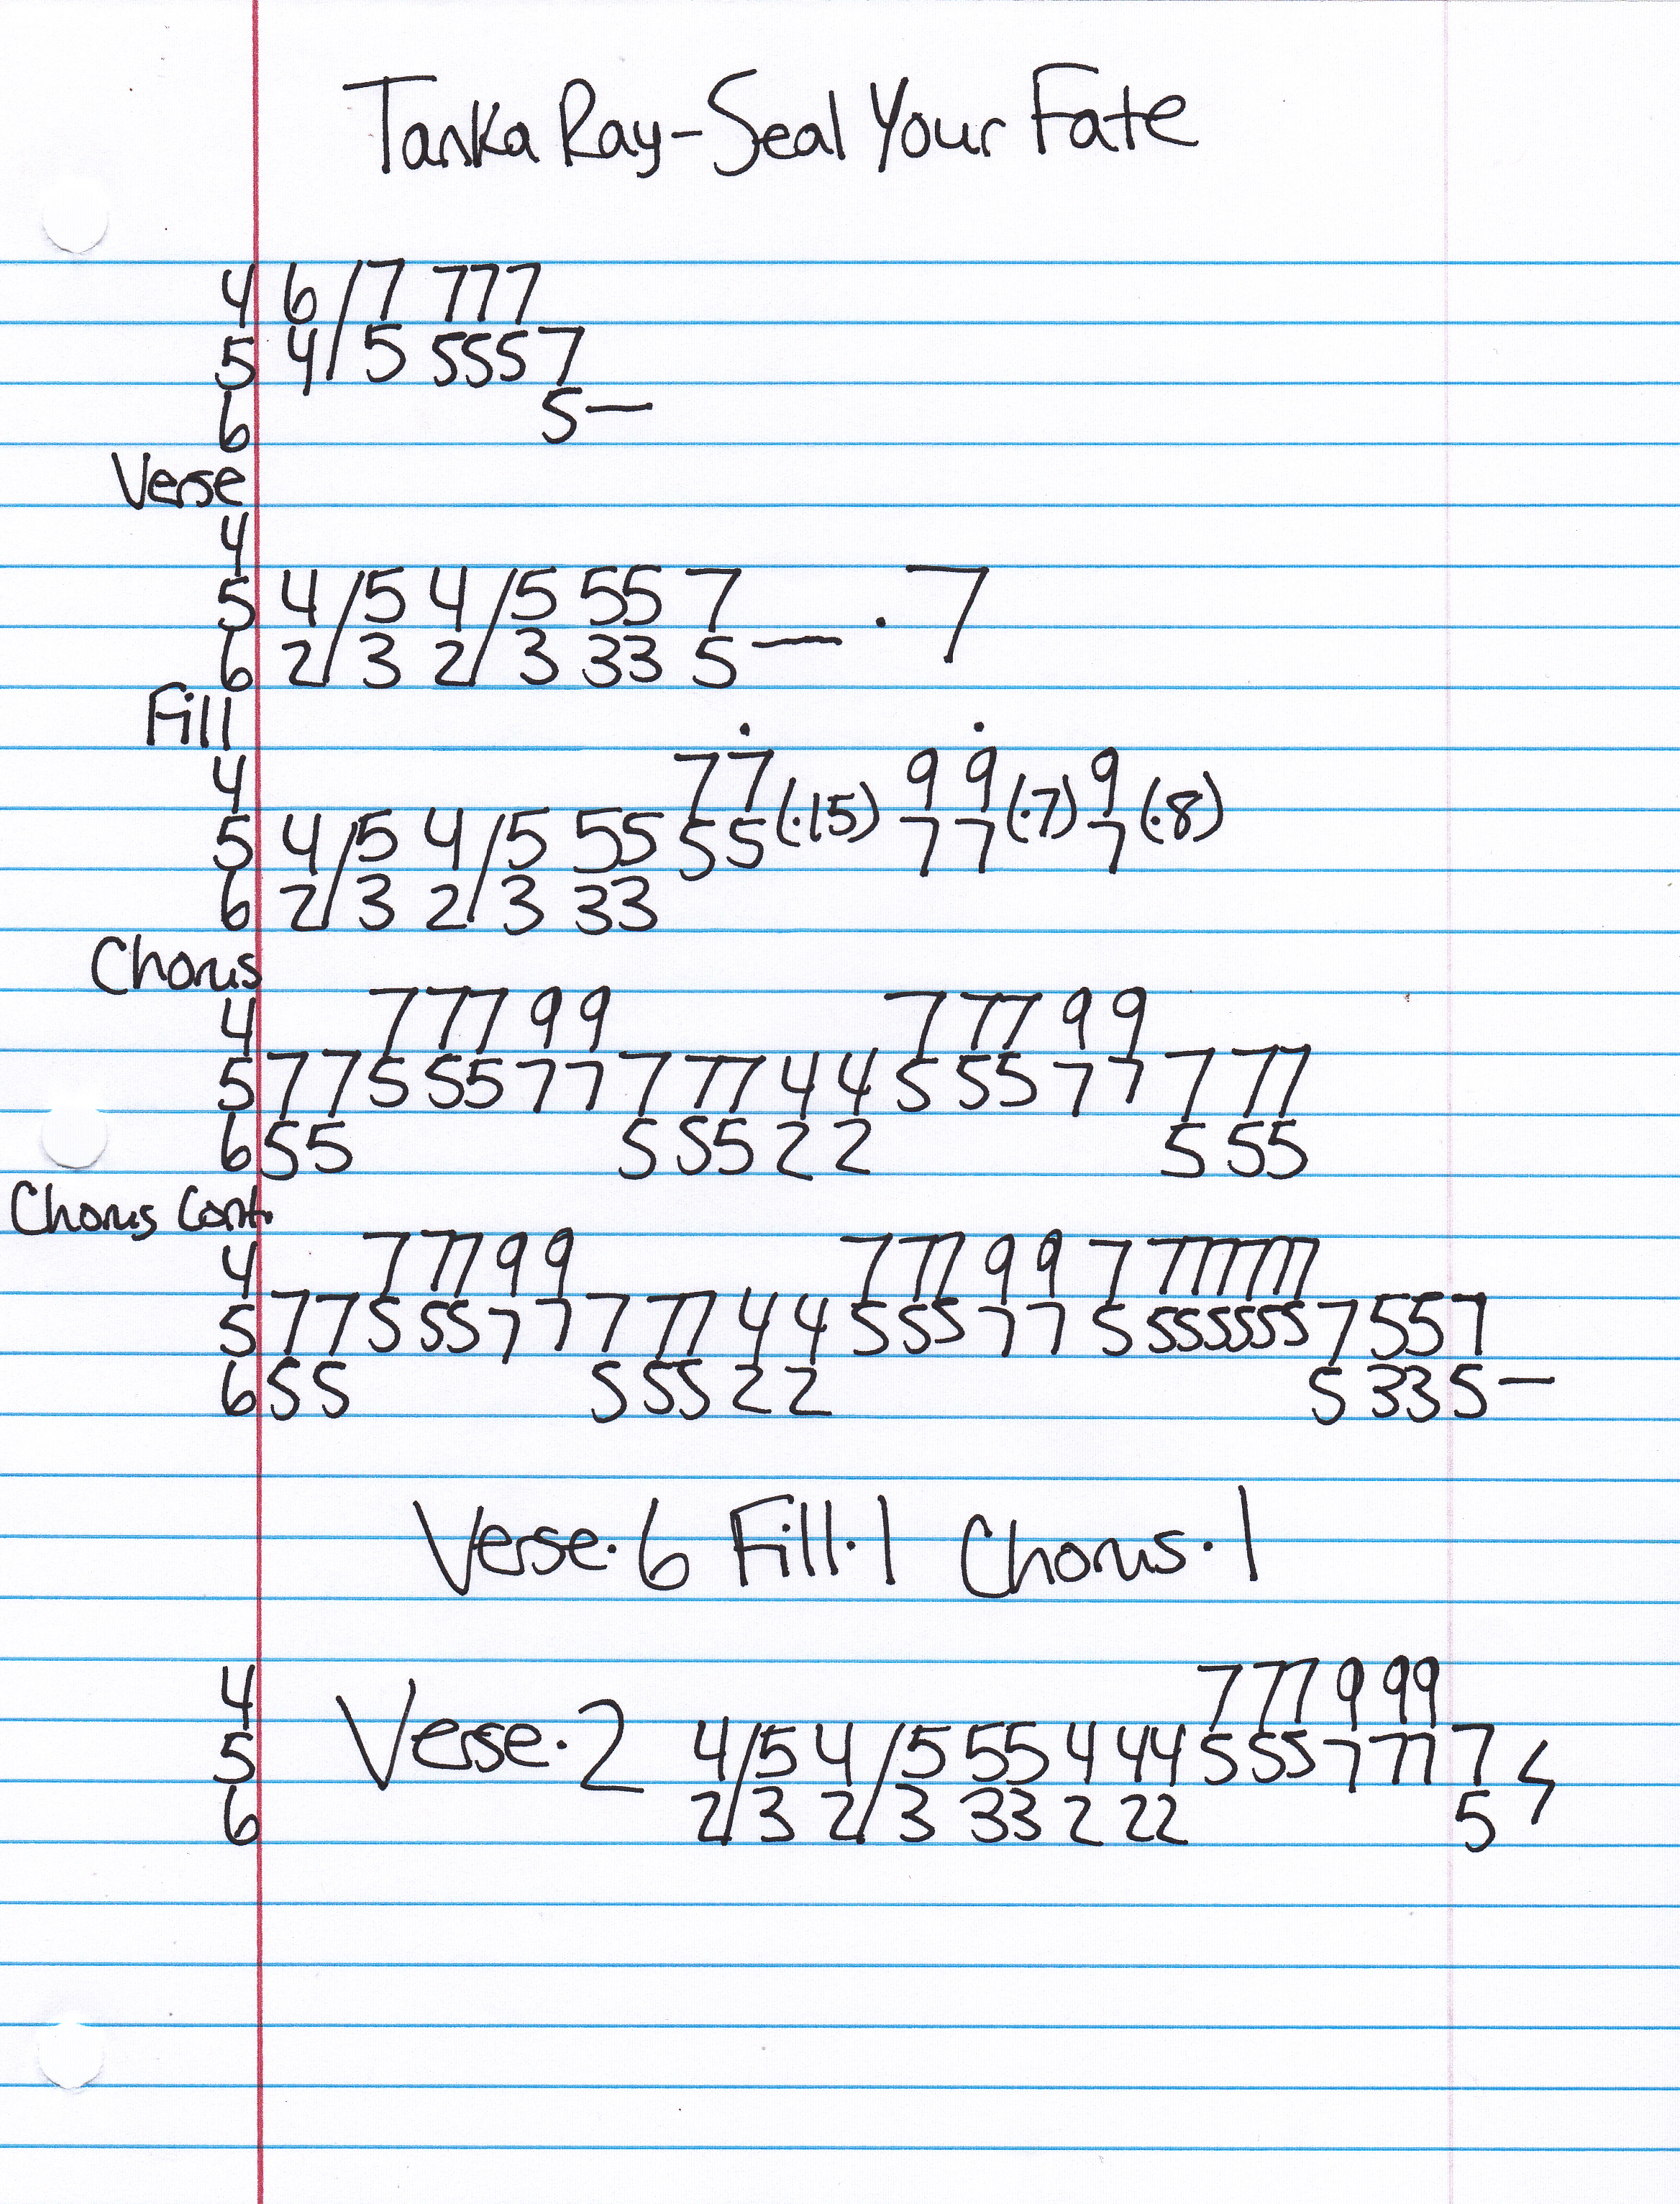 Tanka Ray-Seal Your Fate
4 6/7 777
5 4/5 5557
6 5—
Verse
4
5 4/5 4/5 55 7
6 2/3 2/3 33 5— ·7
Fill
4 77̇ 99̇ 9
5 4/5 4/5 55 55(·15) 77(·7) 7(·8)
6 2/3 2/3 33
Chorus
4 7 77 9 9 7 77 9 9
5 7 7 5 55 7 7 7 77 4 4 5 55 7 7 7 77
6 5 5 5 55 2 2 5 55
Chorus Cont.
4 7 77 9 9 7 77 9 9 7 77777
5 7 7 5 55 7 7 7 77 4 4 5 55 7 7 5 55555 7 55 7
6 5 5 5 55 2 2 5 33 5—
Verse·6 Fill·1 Chorus·1
4 7 77 9 99
5 Verse·2 4/5 4/5 55 4 44 5 55 7 77 7
6 2/3 2/3 33 2 22 5